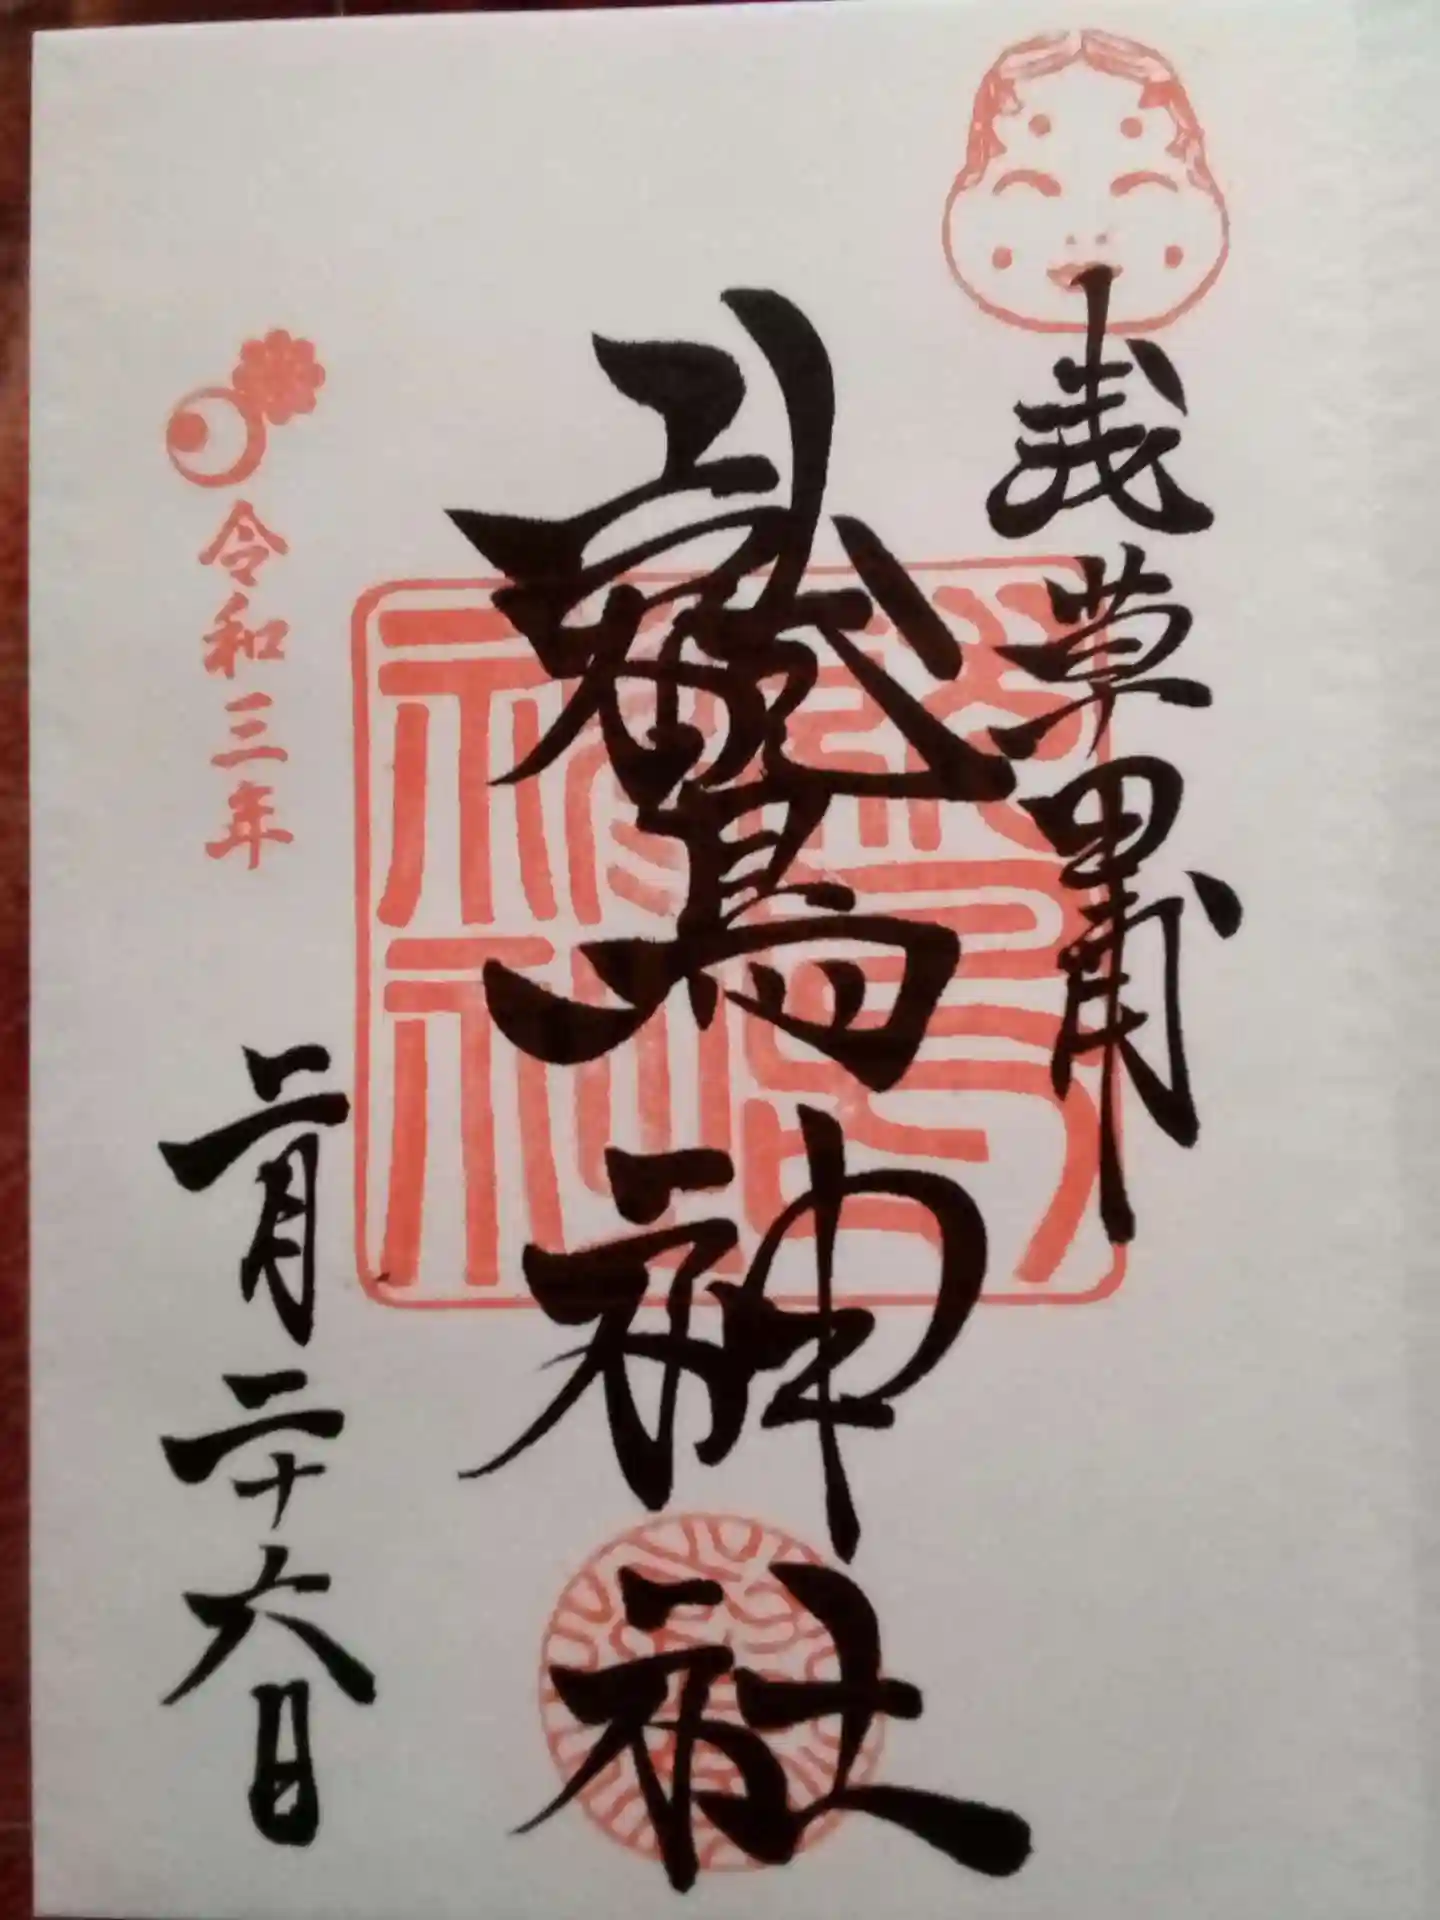 浅草田甫
鷲神社
鷲神社
令和三年
二月二十六日